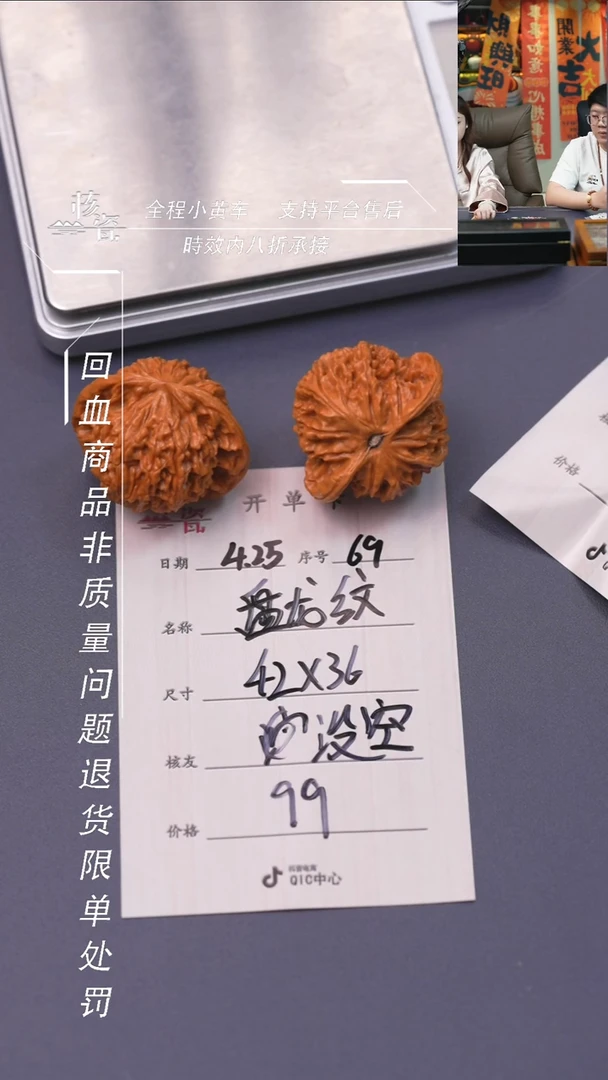 核瓷
全程小黄苹 支持平台售后
時效内八折承接
開業
大吉
心想事成
回血商品非质量问题退货限单处罚
开单
日期 4.25 序号 69
名称 盘龙纹
尺寸 42X36
核友 没空
价格 99
抖音电商
QIC中心
价格